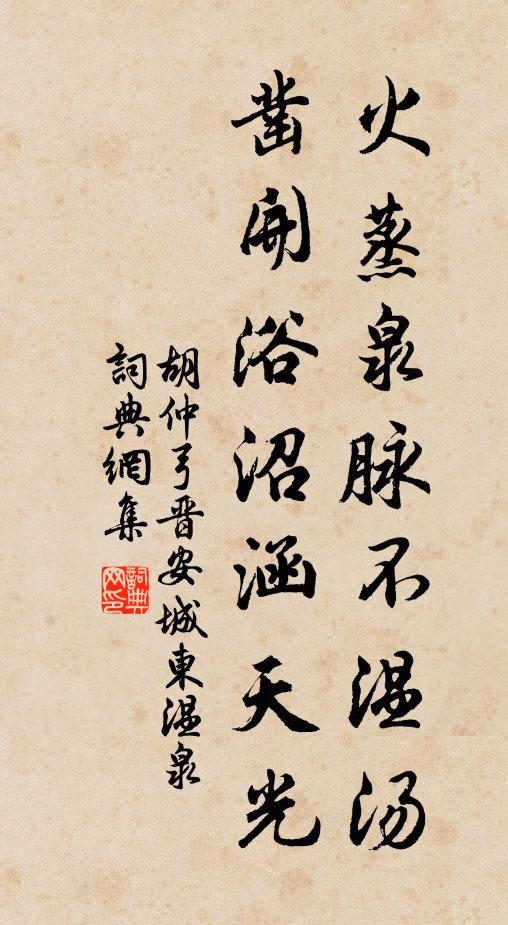 火蒸泉脉不温汤
凿開浴沼涵天光
胡仲弓晋安城東温泉
詞典網集
詞典网印